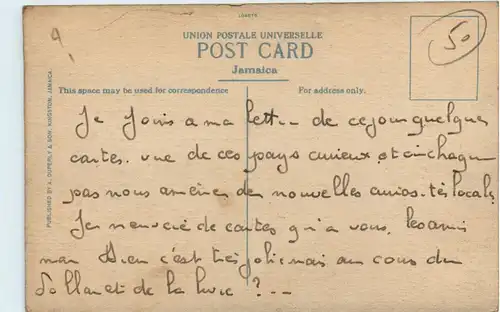 UNION POSTALE UNIVERSELLE
POST CARD
Jamaica
This space may be used for correspondence
For address only.
PUBLISHED BY A. DUPERLY & SON, KINGSTON, JAMAICA.
50
Je Joins a ma lettre de ce jour quelques
cartes. vue de ces pays curieux et à chaque
pas nous amènes de nouvelles curiosités locales
J'en de cartes qu'a vous, les amis
mon Dieu c'est très joli mais au cours du
Dollar et de la livre ? --